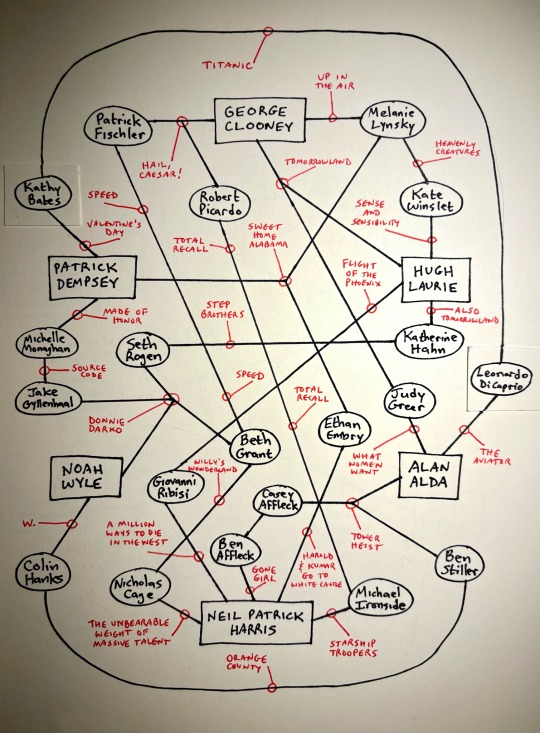 TITANIC
UP IN
THE AIR
Patrick
Fischler
GEORGE
CLOONEY
Melanie
Lynsky
HAIL,
CAESAR!
TOMORROWLAND
HEAVENLY
CREATURES
Kathy
Bates
SPEED
Robert
Picardo
Kate
Winslet
VALENTINE'S
DAY
TOTAL
RECALL
SWEET
HOME
ALABAMA
SENSE
AND
SENSIBILITY
PATRICK
DEMPSEY
FLIGHT
OF THE
PHOENIX
HUGH
LAURIE
MADE OF
HONOR
STEP
BROTHERS
ALSO
TOMORROWLAND
Michelle
Monaghan
Seth
Rogen
Katherine
Hahn
SOURCE
CODE
Leonardo
DiCaprio
Jake
Gyllenhaal
SPEED
TOTAL
RECALL
Judy
Greer
DONNIE
DARKO
Beth
Grant
Ethan
Embry
WHAT
WOMEN
WANT
THE
AVIATOR
NOAH
WYLE
WILLY'S
WONDERLAND
Giovanni
Ribisi
ALAN
ALDA
Casey
Affleck
W.
A MILLION
WAYS TO DIE
IN THE WEST
Ben
Affleck
TOWER
HEIST
HAROLD
&
KUMAR
GO TO
WHITE CASTLE
Colin
Hanks
GONE
GIRL
Ben
Stiller
Nicholas
Cage
Michael
Ironside
THE UNBEARABLE
WEIGHT OF
MASSIVE TALENT
NEIL PATRICK
HARRIS
STARSHIP
TROOPERS
ORANGE
COUNTY